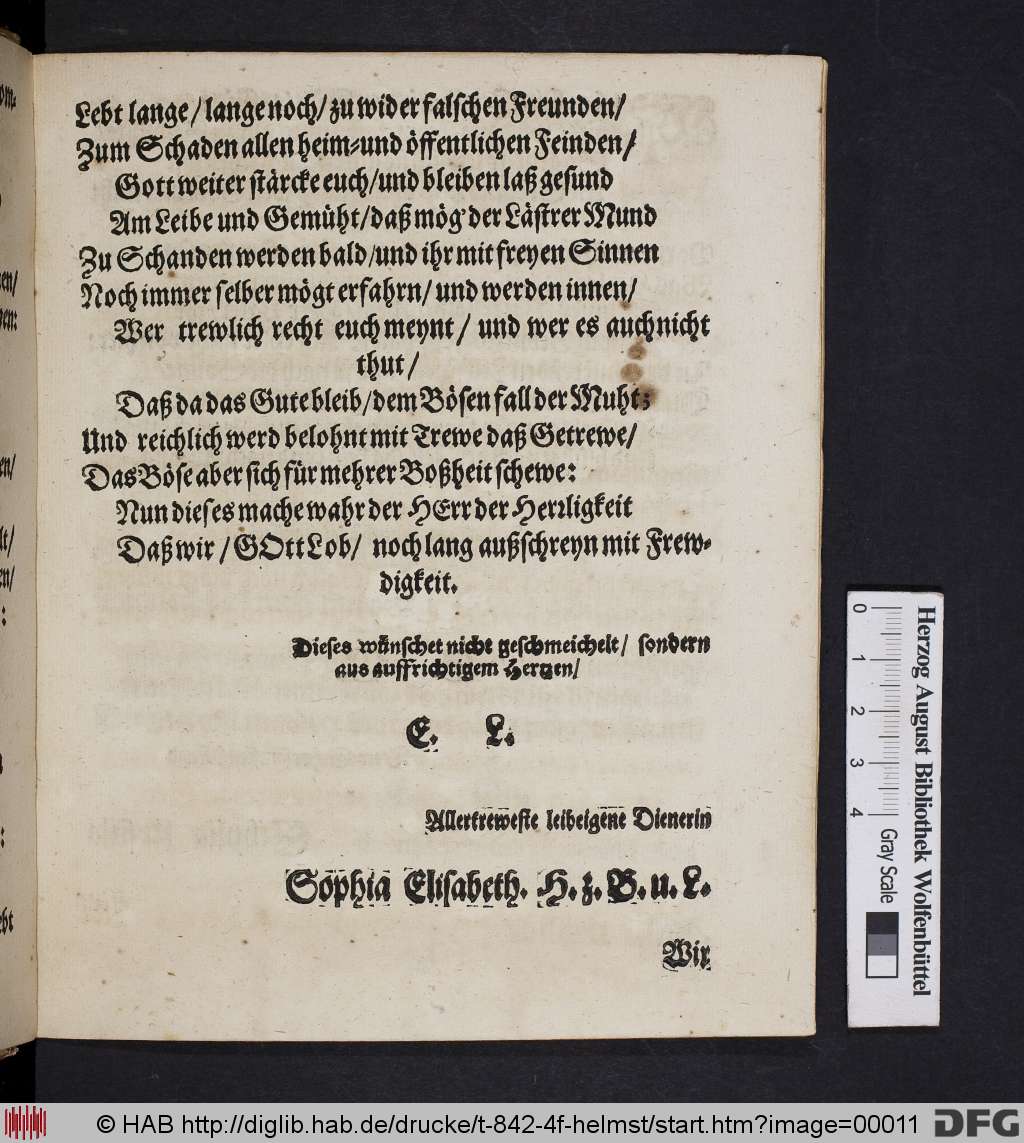 Lebt lange / lange noch / zu wider falschen Freunden /
Zum Schaden allen heim- und öffentlichen Feinden /
Gott weiter stärcke euch / und bleiben laß gesund
Am Leibe und Gemüht / daß mög' der Lästrer Mund
Zu Schanden werden bald / und ihr mit freyen Sinnen
Noch immer selber mögt erfahrn / und werden innen /
Wer trewlich recht euch meynt / und wer es auch nicht
thut /
Daß da das Gute bleib / dem Bösen fall der Muht;
Und reichlich werd belohnt mit Trewe daß Getrewe /
Das Böse aber sich für mehrer Boßheit schewe:
Nun dieses mache wahr der HErr der Herrligkeit
Daß wir / GOtt Lob / noch lang außschreyn mit Frew-
digkeit.
Dieses wünschet nicht geschmeichelt / sondern
aus auffrichtigem Hertzen /
E. L.
Allertreweste leibeigene Dienerin
Sophia Elisabeth. H. z. B. u. L.
Wir
Herzog August Bibliothek Wolfenbüttel
0 1 2 3 4
Gray Scale
© HAB http://diglib.hab.de/drucke/t-842-4f-helmst/start.htm?image=00011
DFG